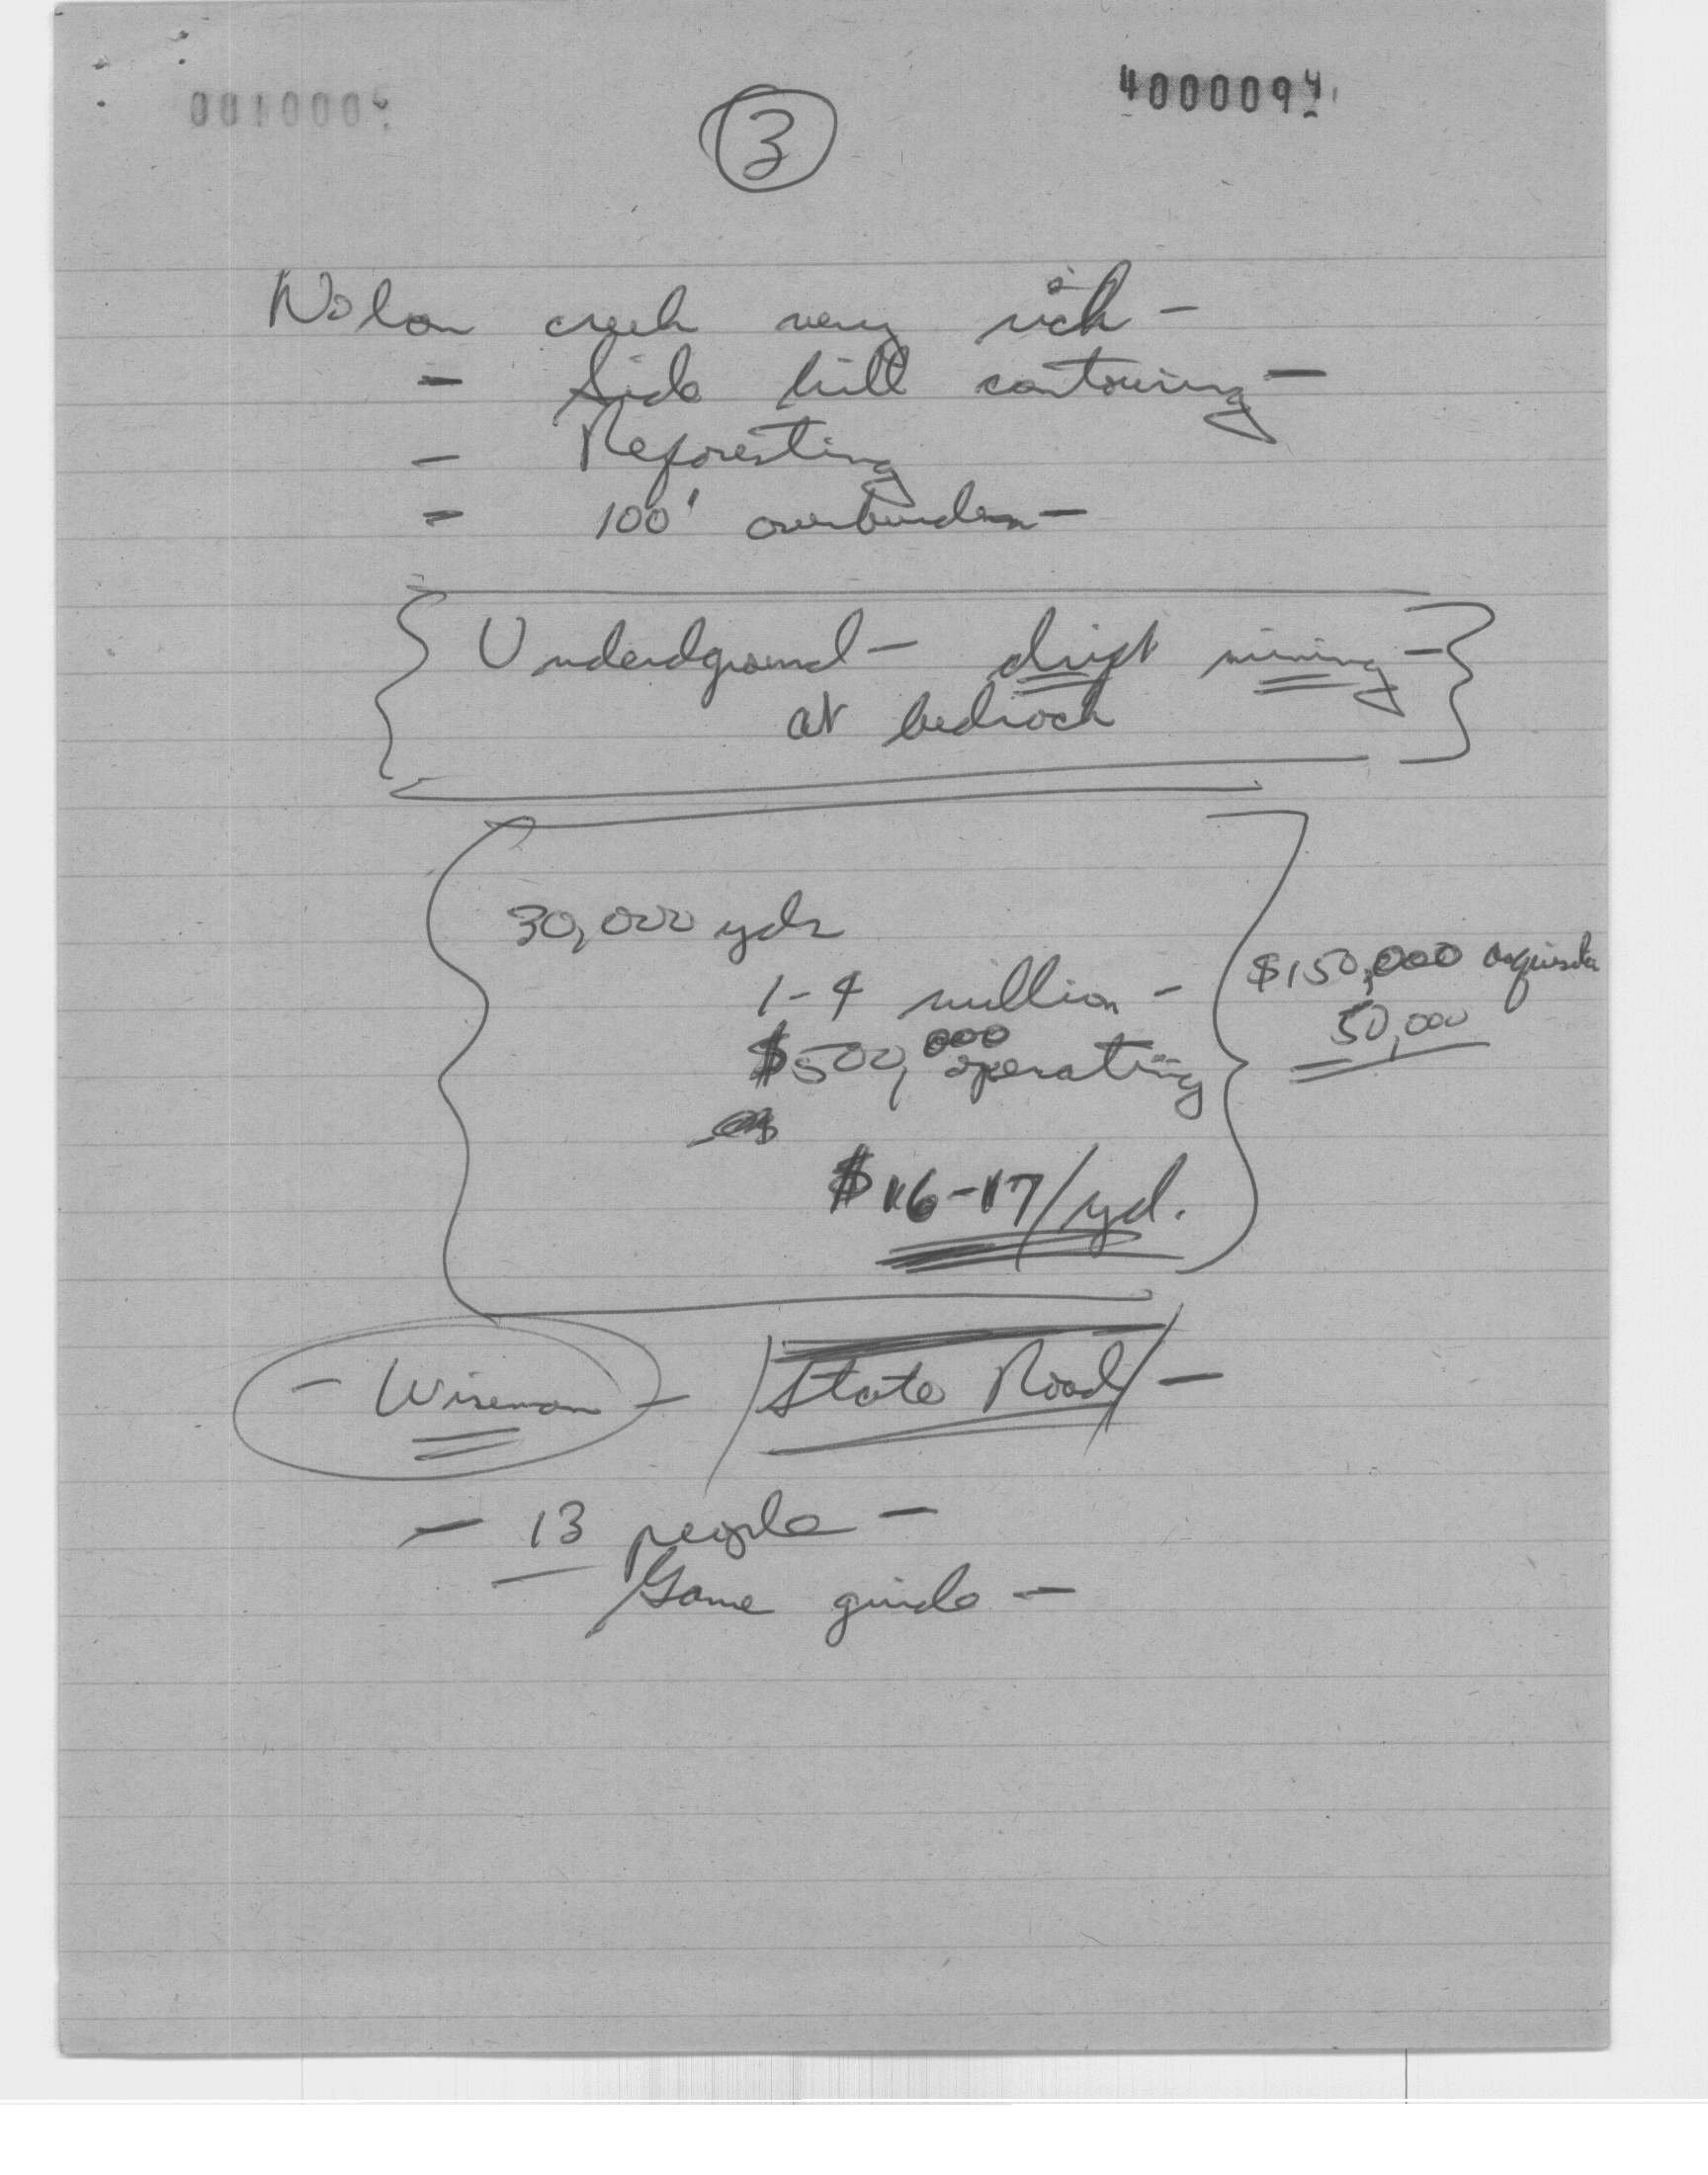 4000094
3
Nolan creek very rich -
- Side hill contouring -
- Reforesting
- 100' overburden -
Underdground - drift mining -
at bedrock
30,000 yds
1-4 million -
$150,000
$500,000 operating
50,000
$16-17/yd.
- Wiseman - /State Road/ -
- 13 people -
Game guide -